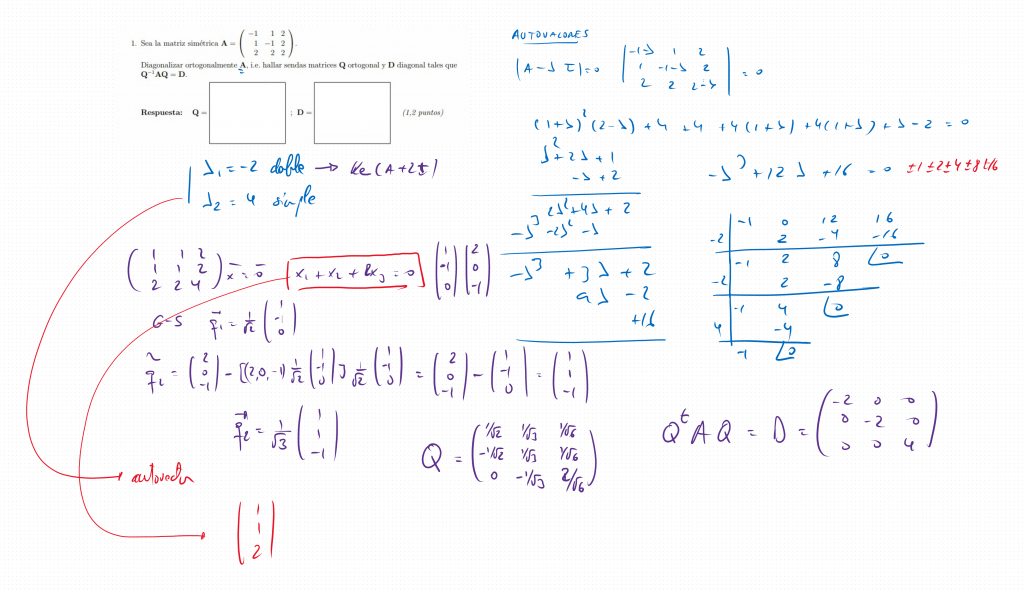 1. Sea la matriz simétrica A = ( -1 1 2
1 -1 2
2 2 2 ).
Diagonalizar ortogonalmente A, i.e. hallar sendas matrices Q ortogonal y D diagonal tales que
Q⁻¹AQ = D.
Respuesta: Q = ; D = (1,2 puntos)
AUTOVALORES
|A - λ I| = 0 | -1-λ 1 2
1 -1-λ 2
2 2 2-λ | = 0
(1+λ)² (2-λ) + 4 + 4 + 4(1+λ) + 4(1+λ) + λ - 2 = 0
λ² + 2λ + 1
-λ + 2
2λ² + 4λ + 2
-λ³ -2λ² -λ
-λ³ + 3λ + 2
9λ - 2
+16
-λ³ + 12λ + 16 = 0 ±1 ±2 ±4 ±8 ±16
-1 0 12 16
-2 2 -4 -16
-1 2 8 0
-2 2 -8
-1 4 0
4 -4
-1 0
λ₁ = -2 doble → Ker(A+2I)
λ₂ = 4 simple
( 1 1 2
1 1 2
2 2 4 ) x = 0 x₁ + x₂ + 2x₃ = 0 ( 1 -1 0 ) ( 2 0 -1 )
G-S q₁ = 1/√2 ( 1 -1 0 )
q̃₂ = ( 2 0 -1 ) - [(2,0,-1) 1/√2 ( 1 -1 0 )] 1/√2 ( 1 -1 0 ) = ( 2 0 -1 ) - ( 1 -1 0 ) = ( 1 1 -1 )
q₂ = 1/√3 ( 1 1 -1 )
Q = ( 1/√2 1/√3 1/√6
-1/√2 1/√3 1/√6
0 -1/√3 2/√6 )
Qᵗ A Q = D = ( -2 0 0
0 -2 0
0 0 4 )
autovector
( 1
1
2 )